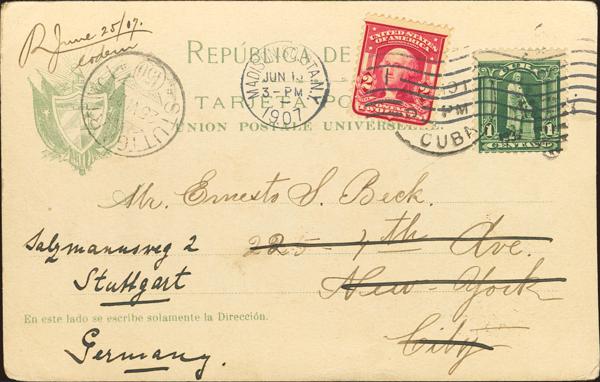 R June 25/07.
REPÚBLICA DE
MADISON SQ. STA. N.Y.
JUN 1
3-PM
1907
UNITED STATES
OF AMERICA
2
TARJETA PO
UNION POSTALE UNIVERSELLE.
STUTTG
PM
CUBA
CUBA
1 1
CENTAVO
Mr. Ernesto S. Beck.
Salzmannsweg 2
225 - 4th Ave.
Stuttgart
New-York
En este lado se escribe solamente la Dirección.
City
Germany.